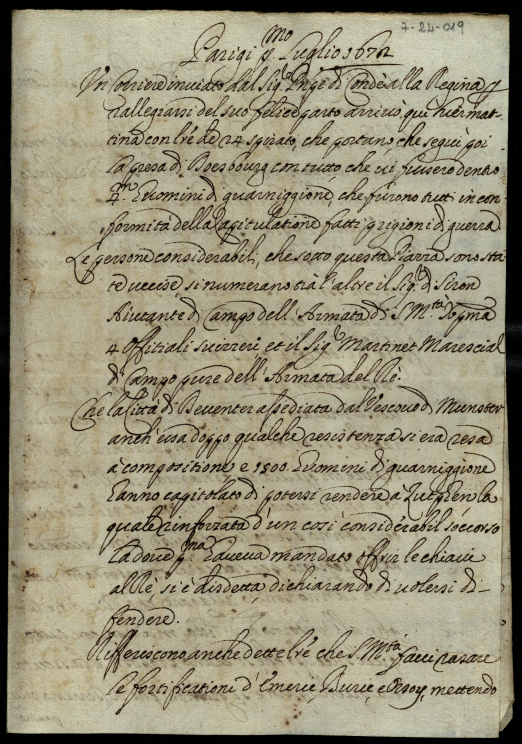 7-24-019
Parigi p.mo Luglio 1672
Un Corriere inviato dal Sig.r Prñpe di Condè alla Regina p
rallegrarsi del suo felice parto arrivò qui hiermat-
tina con l're de 24 spirato, che portano che seguì poi
la presa di Doesbourg con tutto che vi fussero dentro
4.m Huomini di guarniggione, che furono tutti in con-
formità della Capitulatione fatti prigioni di guerra
Le persone considerabili, che sotto questa Piazza sono sta-
te uccise si numerano trà l'altre il Sig.r di Siron
Aiutante di Campo dell'Armata di S. M.tà Xp̃ma
4 Offitiali suizzeri et il Sig.r Martinet Marescial
di Campo pure dell'Armata del Rè.
Che la Città di Deventer assediata dal Vescovo di Munster
anch'essa doppo qualche resistenza si era resa
à compositione e 1500. Huomini di guarniggione
hanno capitolato di potersi rendere à Zutphen la
quale rinforzata d'un così considerabil soccorso
là dove p.ma haveva mandato offrir le chiavi
al Rè, si è disdetta dichiarando di volersi di-
fendere.
Rifferiscono anche dette l're che S. M.tà facci rasare
le fortificationi d'Emeric, Buric e Orsoy, mettendo